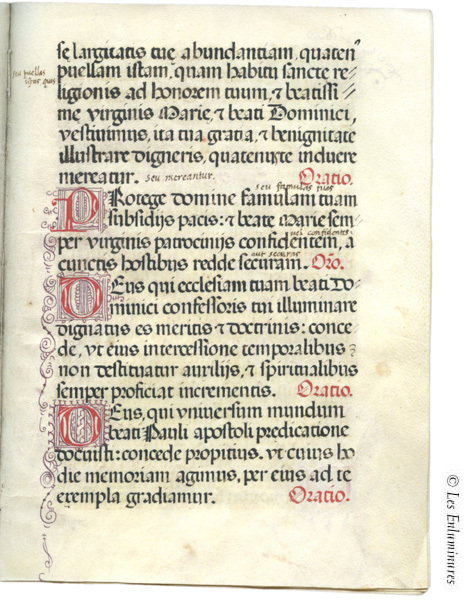 se largitatis tue abundantiam, quaten⁹
seu puellas
istas quas
puellam istam, quam habitu sancte re-
ligionis ad honorem tuum, & beatissi-
me virginis Marie, & beati Dominici,
vestiuimus, ita tua gratia, & benignitate
illustrare digneris, quatenus te induere
mereatur. seu mereantur. Oratio.
seu famulas tuas
PRotege domine famulam tuam
subsidijs pacis: & beate Marie sem-
per virginis patrocinijs confidentem, a
vel confidentes
cunctis hostibus redde securam. Orõ.
aut securas
DEus qui ecclesiam tuam beati Do-
minici confessoris tui illuminare
dignatus es meritis & doctrinis: conce-
de, vt eius intercessione temporalibus
non destituatur auxilijs, & spiritualibus
semper proficiat incrementis. Oratio.
DEus, qui vniuersum mundum
beati Pauli apostoli predicatione
docuisti: concede propitius. vt cuius ho
die memoriam agimus, per eius ad te
exempla gradiamur. Oratio.
© Les Enluminures